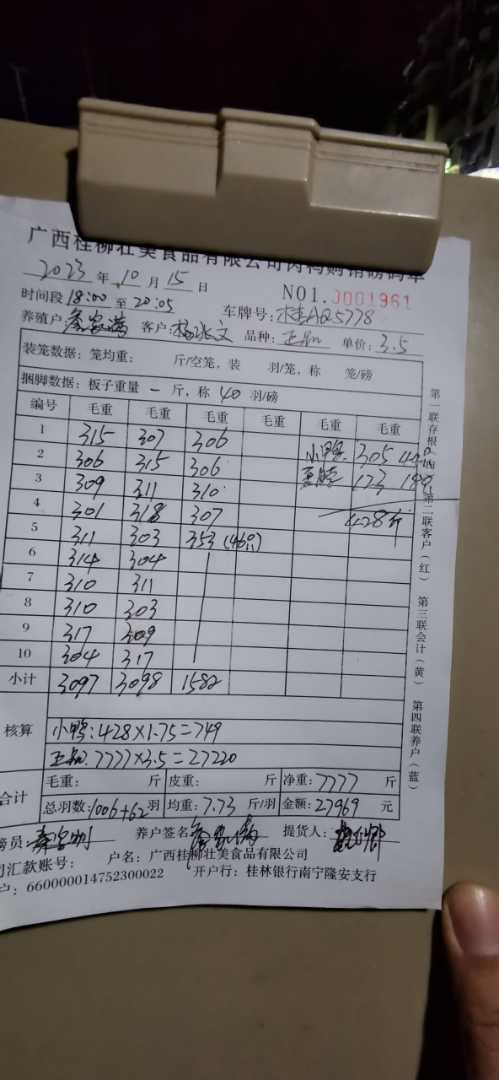 广西桂柳壮美食品有限公司肉鸭购销磅码单
2023年10月15日 NO1.J001961
时间段18:00至20:05 车牌号:桂AQ5778
养殖户: 客户: 品种:正品 单价:3.5
装笼数据:笼均重: 斤/空笼,装 羽/笼,称 笼/磅
捆脚数据:板子重量 一 斤,称 40 羽/磅
编号 毛重 毛重 毛重 毛重 毛重 毛重
1 315 307 306
2 306 315 306 小鸭 305
3 309 311 310 173
4 301 318 307 428斤
5 311 303 353 (46只)
6 314 304
7 310 311
8 310 303
9 317 309
10 304 317
小计 3097 3098 1582
核算 小鸭:428×1.75=749
正品:7777×3.5=27220
合计 毛重: 斤 皮重: 斤 净重:7777 斤
总羽数:1006+62羽 均重:7.73 斤/羽 金额:27969 元
务员: 养户签名: 提货人:
司汇款账号: 户名:广西桂柳壮美食品有限公司
户:660000014752300022 开户行:桂林银行南宁隆安支行
第一联存根(白) 第二联客户(红) 第三联会计(黄) 第四联养户(蓝)